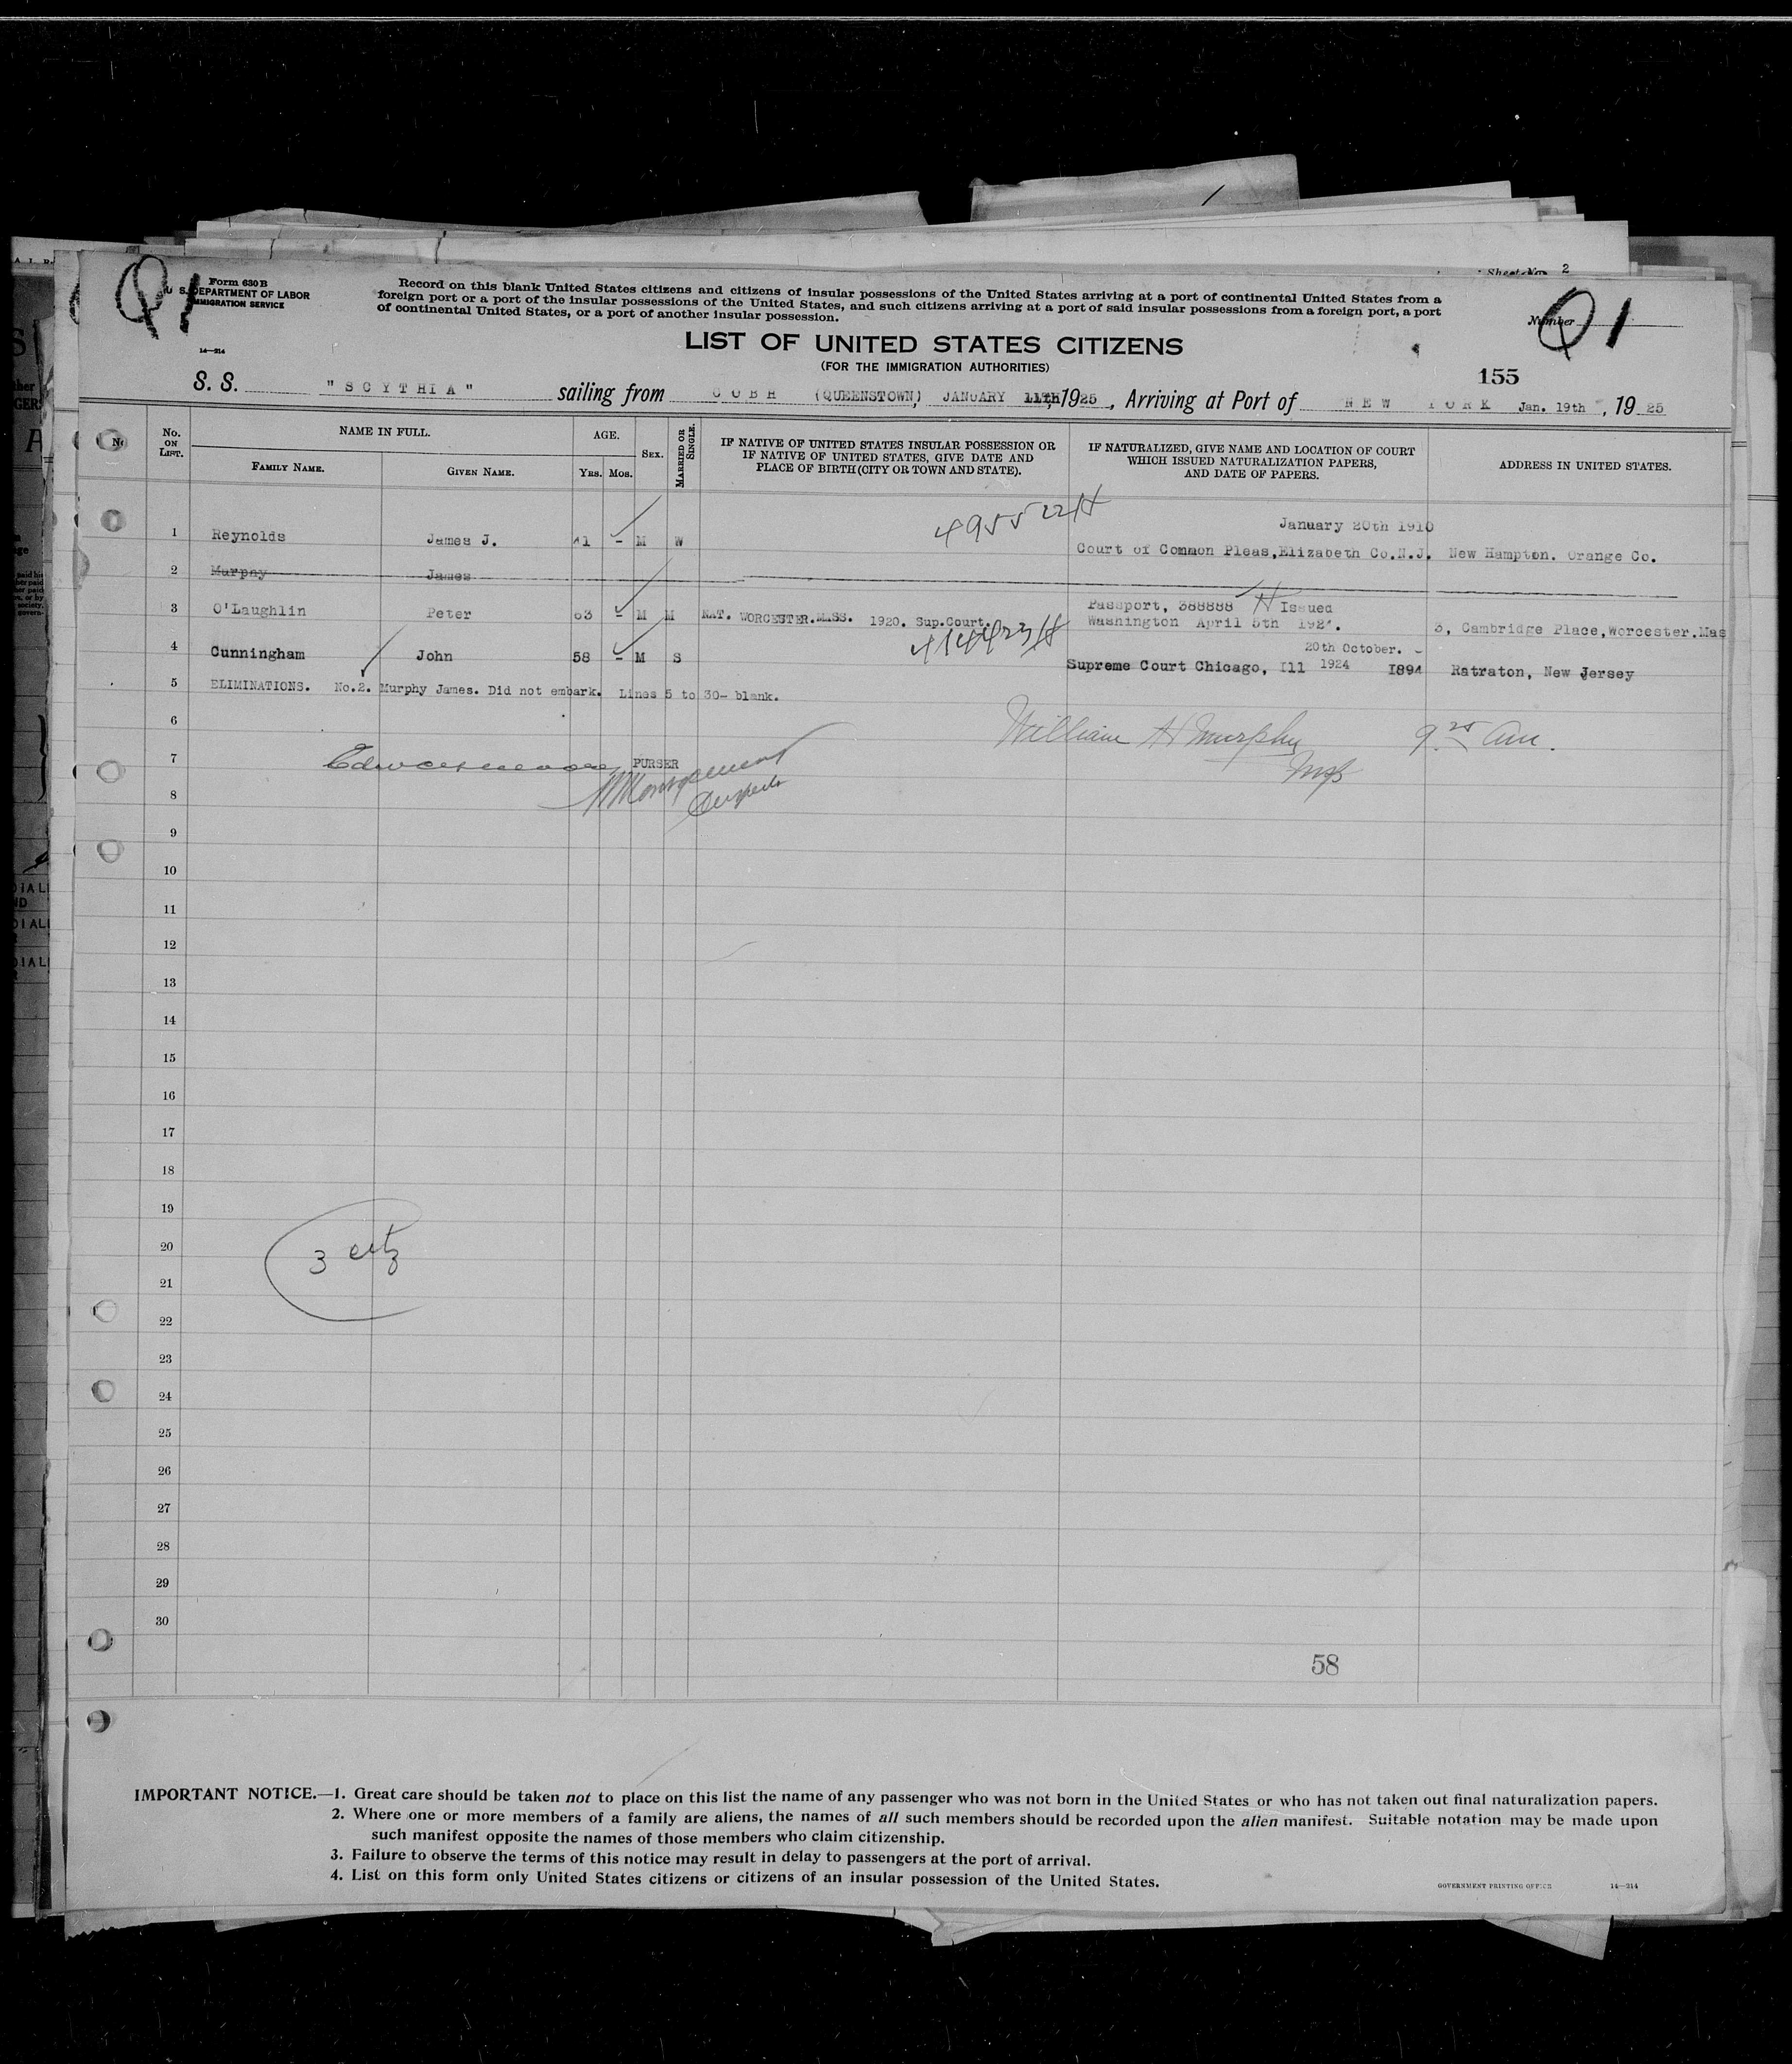 Sheet No. 2
Q1
Form 630 B
U. S. DEPARTMENT OF LABOR
IMMIGRATION SERVICE
14—314
Record on this blank United States citizens and citizens of insular possessions of the United States arriving at a port of continental United States from a
foreign port or a port of the insular possessions of the United States, and such citizens arriving at a port of said insular possessions from a foreign port, a port
of continental United States, or a port of another insular possession.
Number
Q1
LIST OF UNITED STATES CITIZENS
(FOR THE IMMIGRATION AUTHORITIES)
155
S. S. "SCYTHIA" sailing from COBH (QUEENSTOWN) JANUARY 11th, 1925, Arriving at Port of NEW YORK Jan. 19th, 1925
No. ON LIST. NAME IN FULL. FAMILY NAME. GIVEN NAME. AGE. Yrs. Mos. SEX. MARRIED OR SINGLE.
IF NATIVE OF UNITED STATES INSULAR POSSESSION OR
IF NATIVE OF UNITED STATES, GIVE DATE AND
PLACE OF BIRTH (CITY OR TOWN AND STATE).
IF NATURALIZED, GIVE NAME AND LOCATION OF COURT
WHICH ISSUED NATURALIZATION PAPERS,
AND DATE OF PAPERS.
ADDRESS IN UNITED STATES.
January 20th 1910
1 Reynolds James J. 41 - M W 495522H Court of Common Pleas,Elizabeth Co.N.J. New Hampton. Orange Co.
2 Murphy James
3 O'Laughlin Peter 63 - M M NAT. WORCESTER.MASS. 1920. Sup.Court. Passport, 388888 H Issued
Washington April 5th 192 . 3, Cambridge Place,Worcester.Mas
20th October.
4 Cunningham John 58 - M S Supreme Court Chicago, Ill 1924 1894 Ratraton, New Jersey
5 ELIMINATIONS. No.2. Murphy James. Did not embark. Lines 5 to 30- blank.
6 William H Murphy 9.25 am.
7 PURSER
8
9
10
11
12
13
14
15
16
17
18
19
20 3 citz
21
22
23
24
25
26
27
28
29
30
58
IMPORTANT NOTICE.—1. Great care should be taken not to place on this list the name of any passenger who was not born in the United States or who has not taken out final naturalization papers.
2. Where one or more members of a family are aliens, the names of all such members should be recorded upon the alien manifest. Suitable notation may be made upon
such manifest opposite the names of those members who claim citizenship.
3. Failure to observe the terms of this notice may result in delay to passengers at the port of arrival.
4. List on this form only United States citizens or citizens of an insular possession of the United States.
GOVERNMENT PRINTING OFFICE 14—314